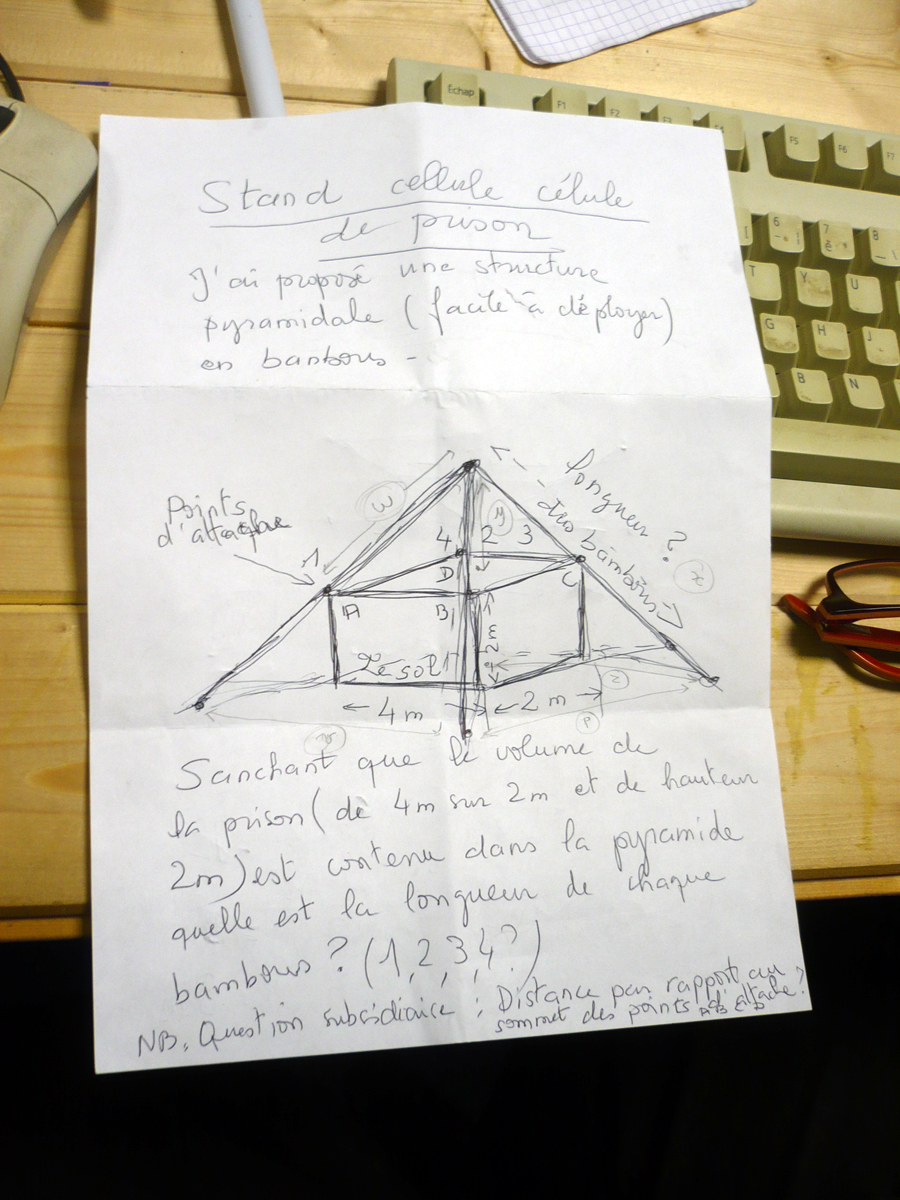 Echap
F1
F2
F5
F6
F7
6
7
8
è
T
Y
U
G
H
J
B
N
Stand cellule célule
de prison
J'ai proposé une structure
pyramidale (facile à déployer)
en bambous -
Points
d'attache
Longueur ?
des bambous
w
y
x
1
4
2
3
A
D
B
C
Le sol
2m
4 m
2 m
z
Sanchant que le volume de
la prison (de 4m sur 2m et de hauteur
2m) est contenu dans la pyramide
quelle est la longueur de chaque
bambous ? (1,2,3,4?)
NB. Question subsidiaire : Distance par rapport au
sommet des points d'attache ?